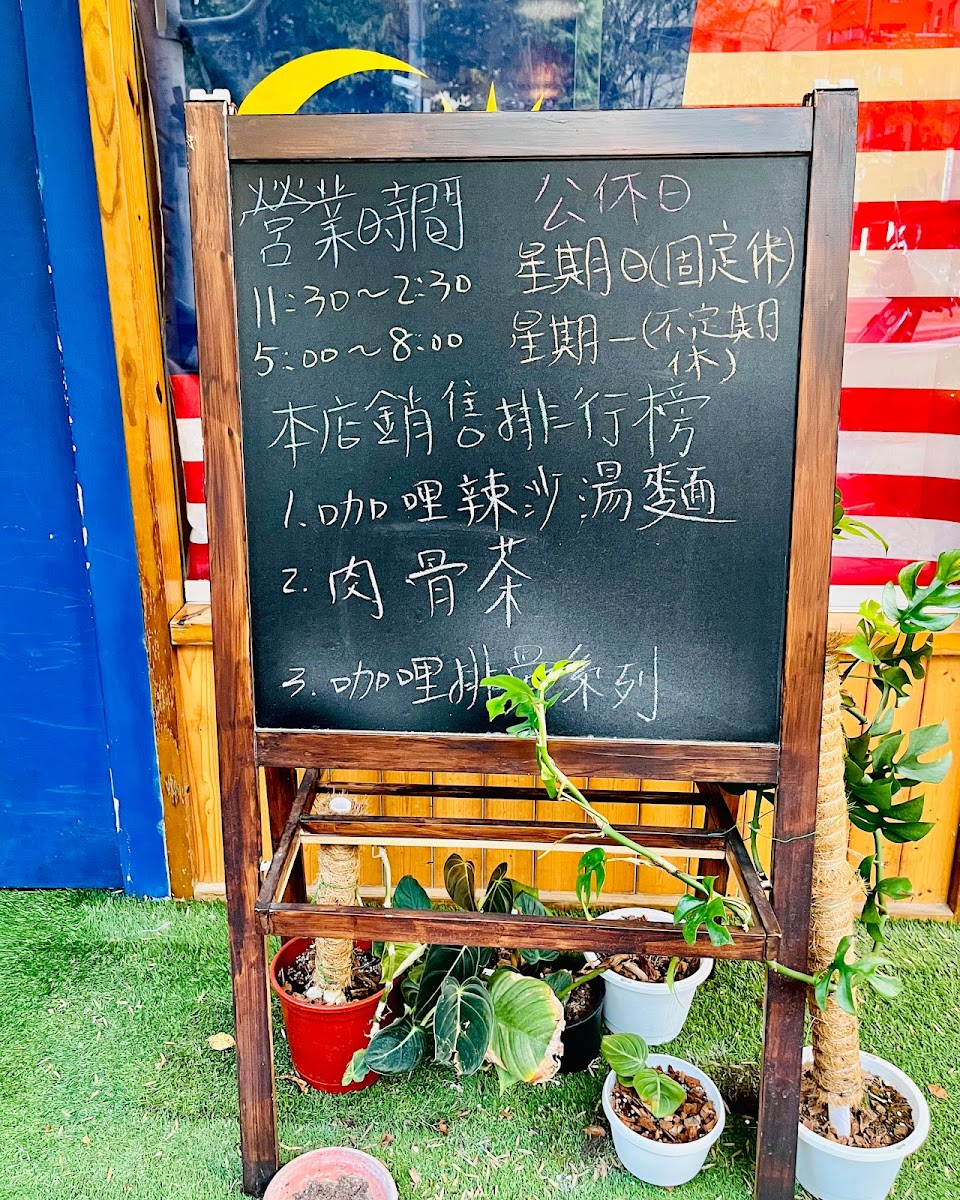 營業時間
11:30～2:30
5:00～8:00
公休日
星期日(固定休)
星期一(不定期
休)
本店銷售排行榜
1.咖哩辣沙湯麵
2.肉骨茶
3.咖哩排骨系列